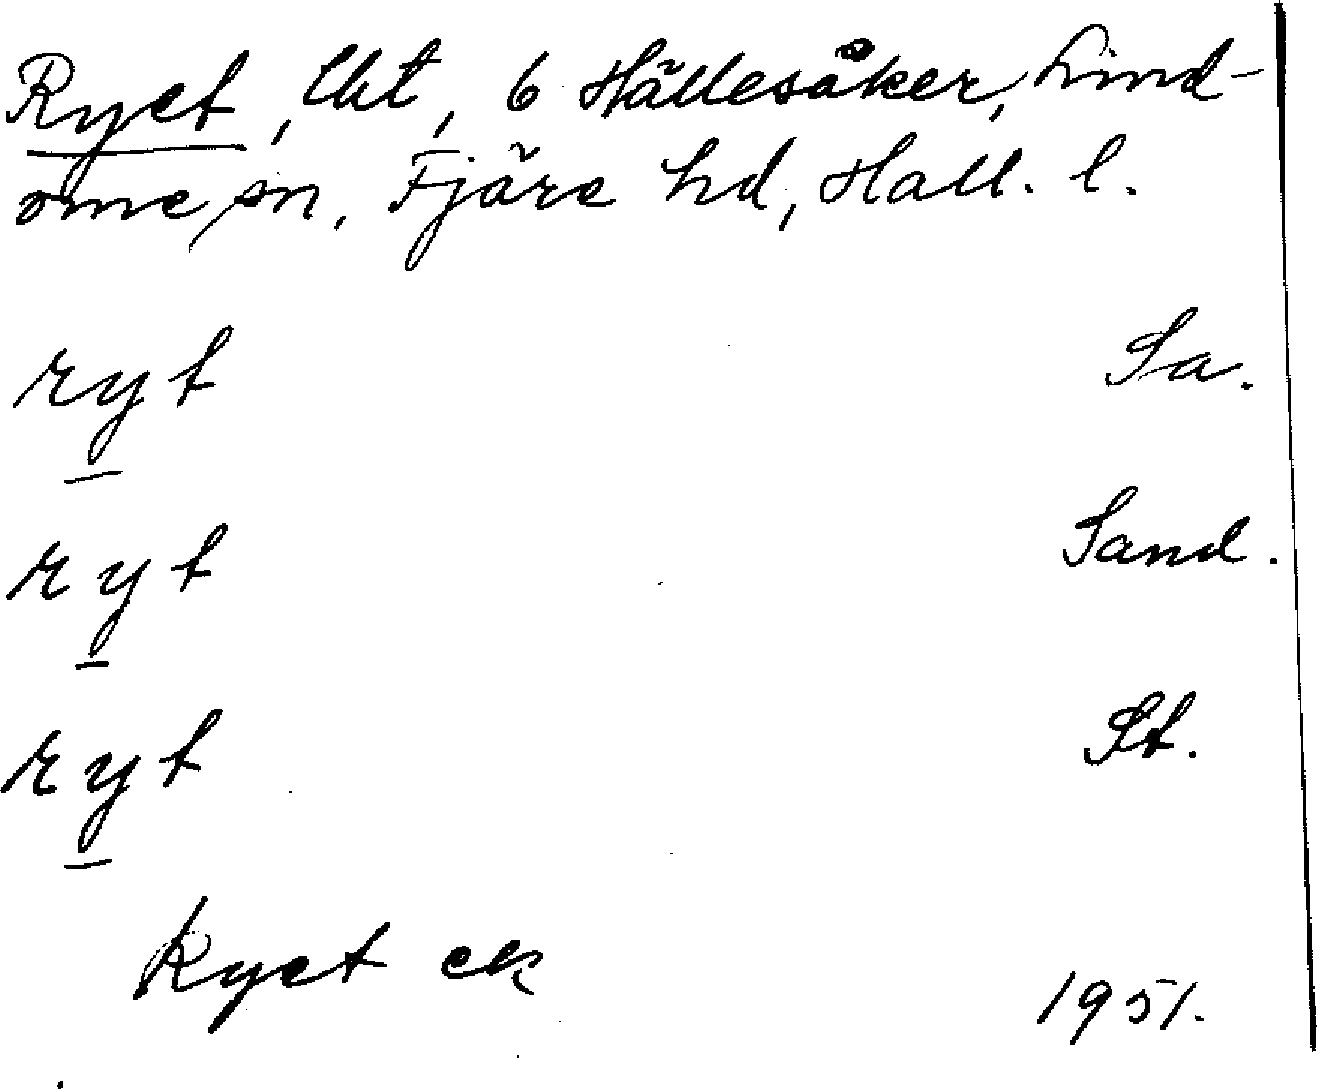 Ryet, lht, 6 Hällesåker, Lind-
ome sn, Fjäre hd, Hall. l.
ryt Sa.
ryt Sand.
ryt St.
Ryet ek
1951.